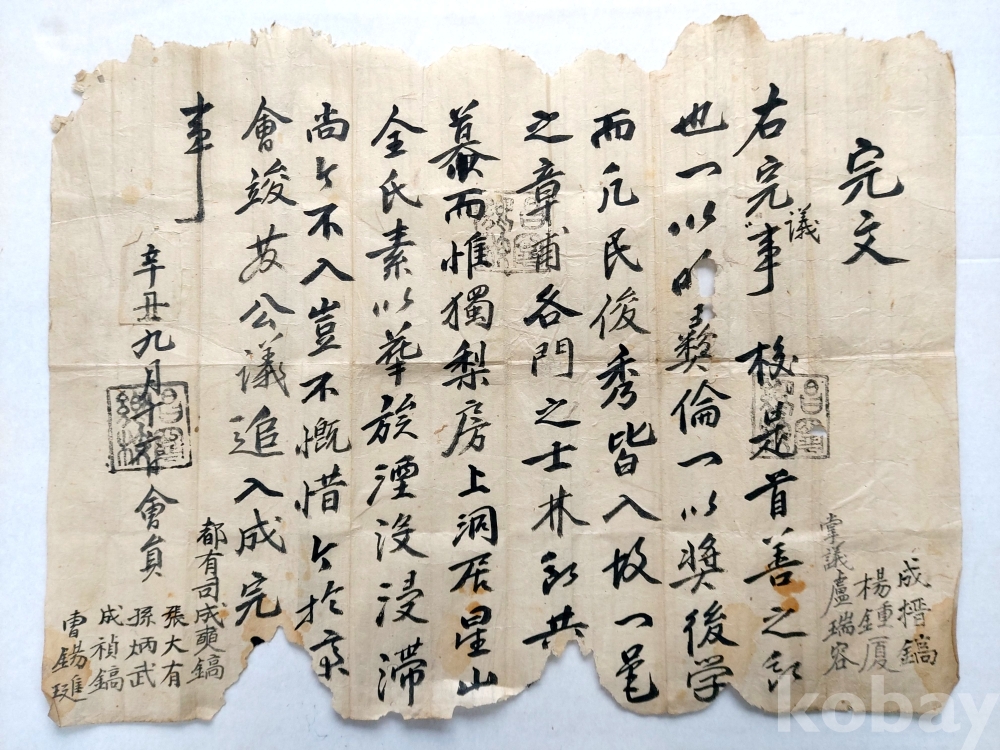 完文
右完議事 校是首善之
也一以明彛倫一以奬後学
而凡民俊秀皆入故一邑
之章甫各門之士林 共
慕而惟獨梨房上洞居星山
全氏素以華族湮沒浸滯
尚今不入豈不慨惜今於
會竣 公議追入成完
事
辛丑九月 會員
都有司成奭鎬
張大有
孫炳武
成禎鎬
曺錫
掌議盧瑞容
楊鍾厦
成搢鎬
kobay